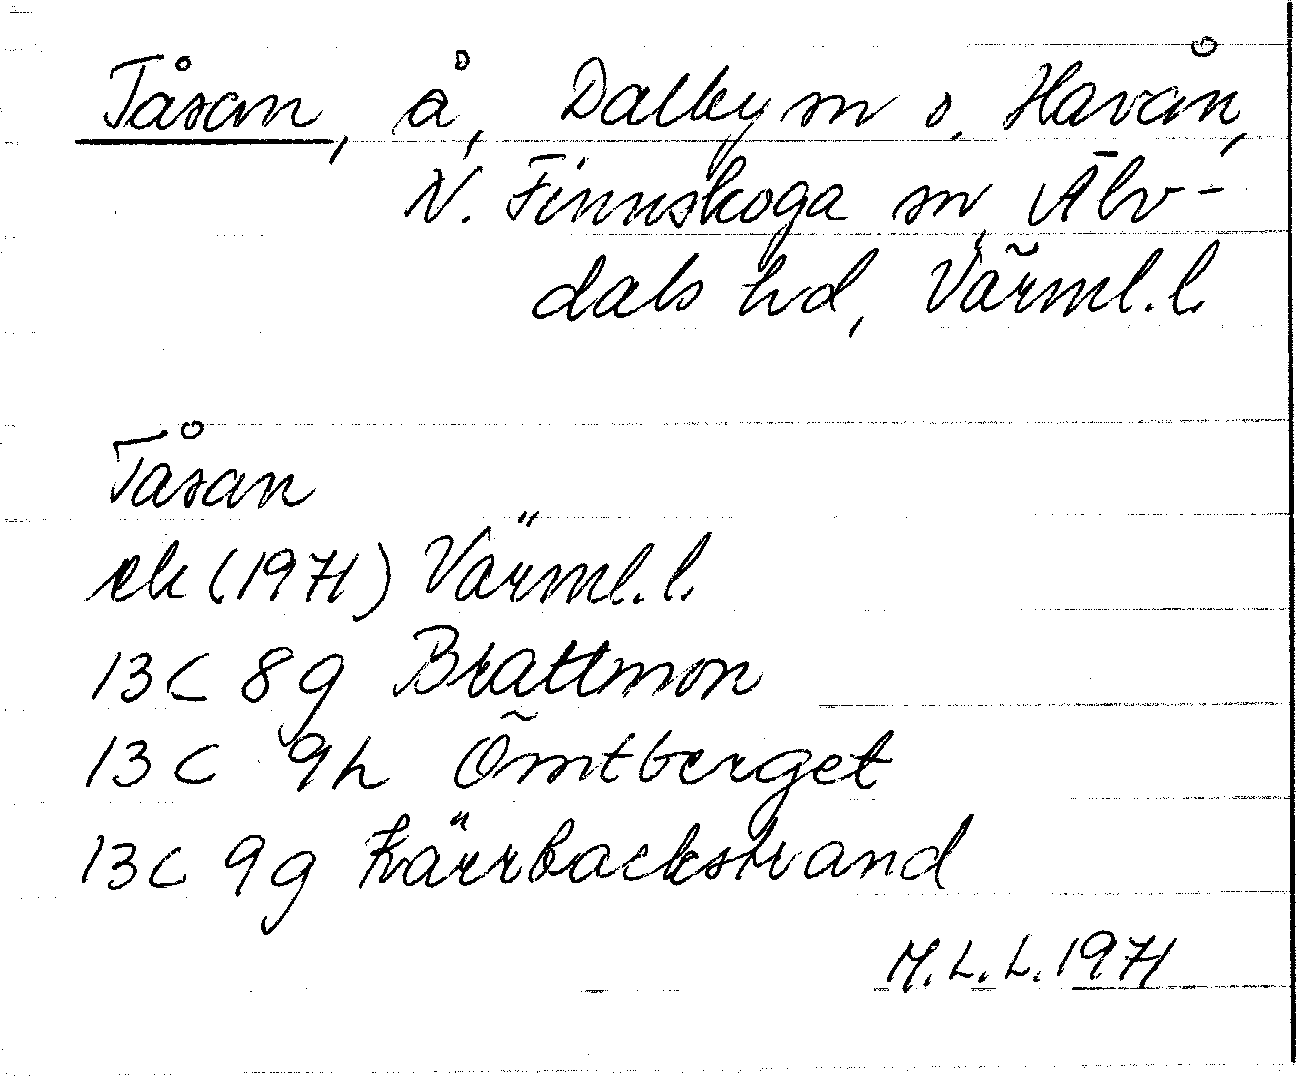 Tåsan, å, Dalby sn o. Havån,
N. Finnskoga sn, Älv-
dals hd, Värml. l.
Tåsan
ek (1971) Värml. l.
13C 8g Brattmon
13C 9h Ömtberget
13C 9g Kärrbackstrand
M.L.L. 1971